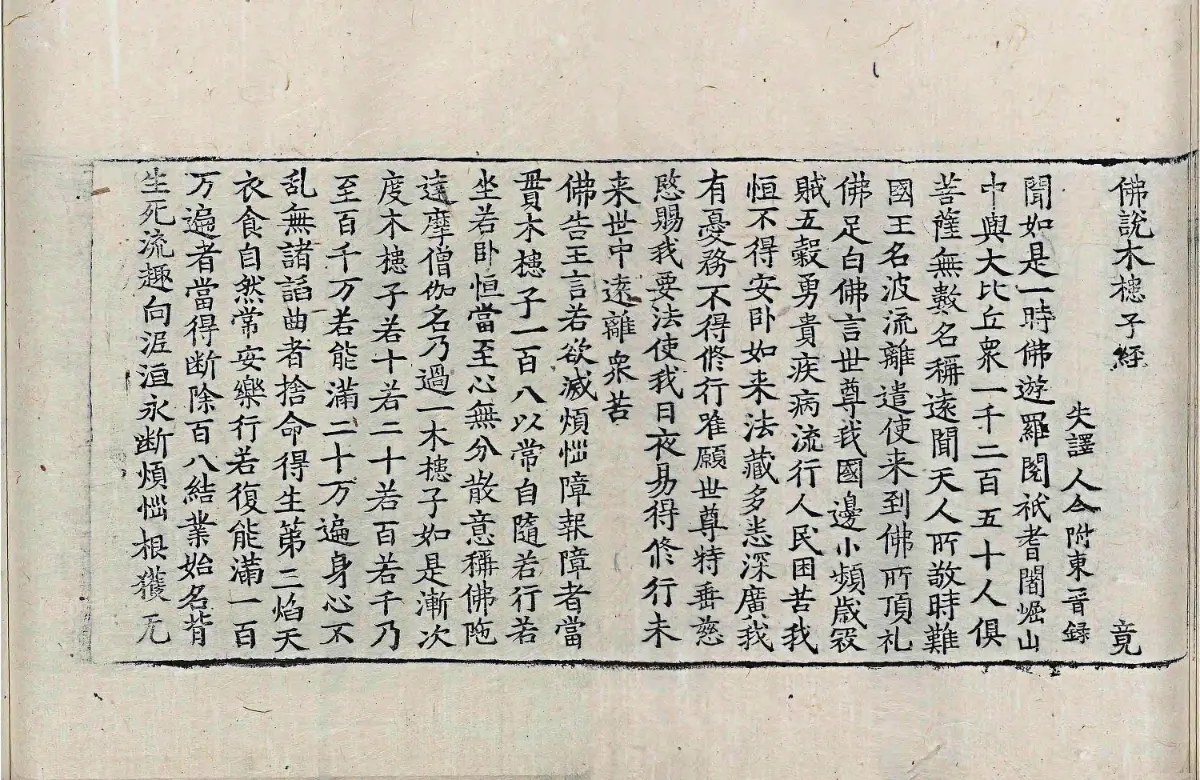 佛說木槵子經 竟
失譯人今附東晉録
聞如是一時佛遊羅閱祇耆闍崛山
中與大比丘衆一千二百五十人俱
菩薩無數名稱遠聞天人所敬時難
國王名波流離遣使来到佛所頂礼
佛足白佛言世尊我國邊小頻歳寇
賊五穀勇貴疾病流行人民困苦我
恒不得安卧如来法藏多悉深廣我
有憂務不得俢行唯願世尊特垂慈
愍賜我要法使我日夜易得俢行未
来世中遠離衆苦
佛告王言若欲滅煩惱障報障者當
貫木槵子一百八以常自隨若行若
坐若卧恒當至心無分散意稱佛陁
達摩僧伽名乃過一木槵子如是漸次
度木槵子若十若二十若百若千乃
至百千万若能滿二十万遍身心不
乱無諸諂曲者捨命得生第三焰天
衣食自然常安樂行若復能滿一百
万遍者當得断除百八結業始名背
生死流趣向涅洹永断煩惱根獲无